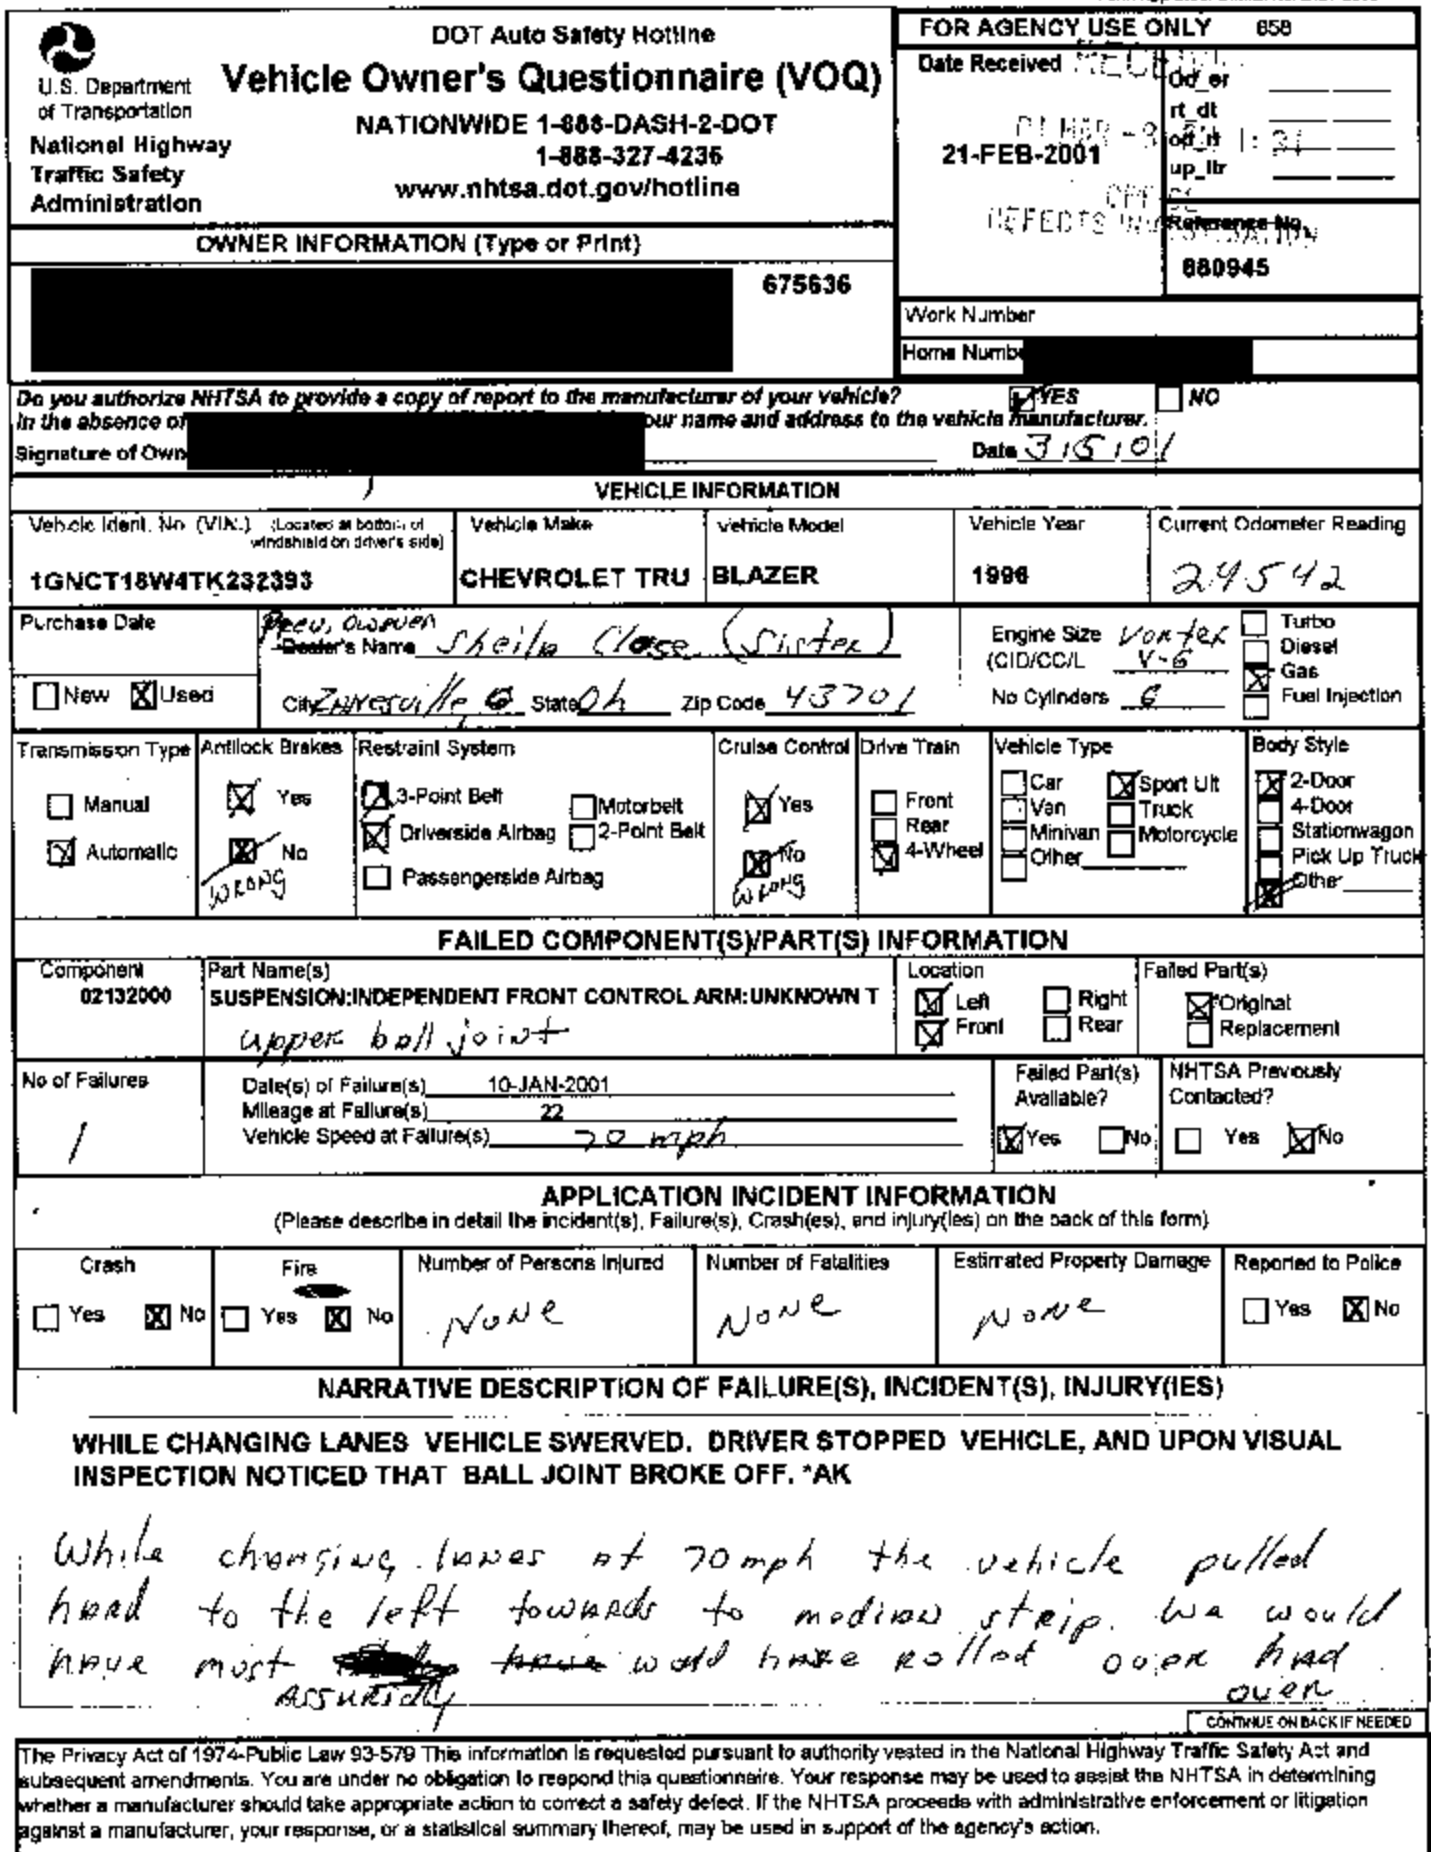 DOT Auto Safety Hotline
Vehicle Owner's Questionnaire (VOQ)
NATIONWIDE 1-888-DASH-2-DOT
1-888-327-4236
www.nhtsa.dot.gov/hotline
U.S. Department
of Transportation
National Highway
Traffic Safety
Administration
FOR AGENCY USE ONLY 658
Date Received
21-FEB-2001
od_er
rt_dt
od_rt
up_ltr
Reference No.
880945
OWNER INFORMATION (Type or Print)
675636
Work Number
Home Numb
Do you authorize NHTSA to provide a copy of report to the manufacturer of your vehicle? YES NO
In the absence of our name and address to the vehicle manufacturer.
Signature of Own Date 3/5/01
VEHICLE INFORMATION
Vehicle Ident. No. (VIN.) (Located at bottom of
windshield on driver's side)
1GNCT18W4TK232393
Vehicle Make
CHEVROLET TRU
Vehicle Model
BLAZER
Vehicle Year
1996
Current Odometer Reading
24542
Purchase Date
New Used
Prev. owner
Dealer's Name Sheila Close (Sister)
City Zanesville State Oh Zip Code 43701
Engine Size Vortex
(CID/CC/L V-6
No Cylinders 6
Turbo
Diesel
Gas
Fuel Injection
Transmission Type
Manual
Automatic
Antilock Brakes
Yes
No
WRONG
Restraint System
3-Point Belt Motorbelt
Driverside Airbag 2-Point Belt
Passengerside Airbag
Cruise Control
Yes
No
WRONG
Drive Train
Front
Rear
4-Wheel
Vehicle Type
Car Sport Ult
Van Truck
Minivan Motorcycle
Other
Body Style
2-Door
4-Door
Stationwagon
Pick Up Truck
Other
FAILED COMPONENT(S)/PART(S) INFORMATION
Component
02132000
Part Name(s)
SUSPENSION:INDEPENDENT FRONT CONTROL ARM:UNKNOWN T
upper ball joint
Location
Left Right
Front Rear
Failed Part(s)
Original
Replacement
No of Failures
1
Date(s) of Failure(s) 10-JAN-2001
Mileage at Failure(s) 22
Vehicle Speed at Failure(s) 70 mph
Failed Part(s)
Available?
Yes No
NHTSA Previously
Contacted?
Yes No
APPLICATION INCIDENT INFORMATION
(Please describe in detail the incident(s), Failure(s), Crash(es), and injury(ies) on the back of this form)
Crash
Yes No
Fire
Yes No
Number of Persons Injured
None
Number of Fatalities
None
Estimated Property Damage
None
Reported to Police
Yes No
NARRATIVE DESCRIPTION OF FAILURE(S), INCIDENT(S), INJURY(IES)
WHILE CHANGING LANES VEHICLE SWERVED. DRIVER STOPPED VEHICLE, AND UPON VISUAL
INSPECTION NOTICED THAT BALL JOINT BROKE OFF. *AK
While changing lanes at 70mph the vehicle pulled
hard to the left towards to median strip. We would
have most have would have rolled over had
Assuridly over
CONTINUE ON BACK IF NEEDED
The Privacy Act of 1974-Public Law 93-579 This information is requested pursuant to authority vested in the National Highway Traffic Safety Act and
subsequent amendments. You are under no obligation to respond this questionnaire. Your response may be used to assist the NHTSA in determining
whether a manufacturer should take appropriate action to correct a safety defect. If the NHTSA proceeds with administrative enforcement or litigation
against a manufacturer, your response, or a statistical summary thereof, may be used in support of the agency's action.